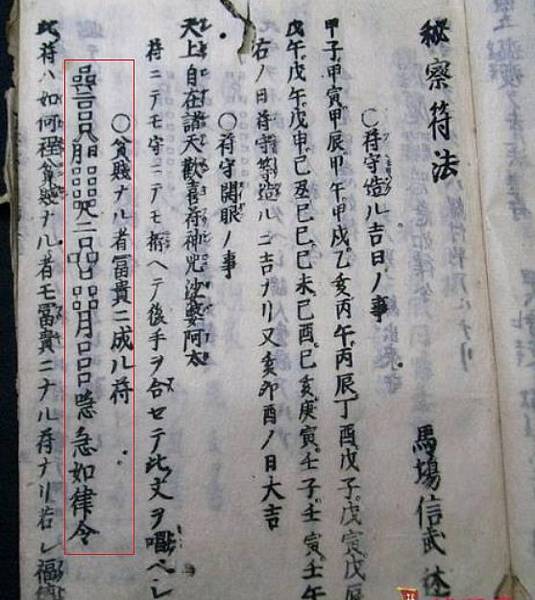 秘察符法
馬場信武述
○符守造ル吉日ノ事
甲子甲寅甲辰甲午甲戌乙亥丙午丙辰丁酉戊子戊寅戊辰
戊午戊午戊申己丑己巳己未己酉己亥庚寅壬子壬寅壬午
右ノ日符守等造ルニ吉ナリ又亥卯酉ノ日大吉
○符守開眼ノ事
天上自在諸天歓喜符神咒娑婆阿太
符ニテモ守ニテモ拵ヘテ後手ヲ合セテ此文ヲ唱ベシ
○貧賤ナル者冨貴ニ成ル符
月口口口 急如律令
此符ハ如何程貧賤ナル者モ冨貴ニナル符ナリ若シ福